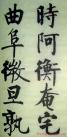 時阿衡奄宅
曲阜微旦孰